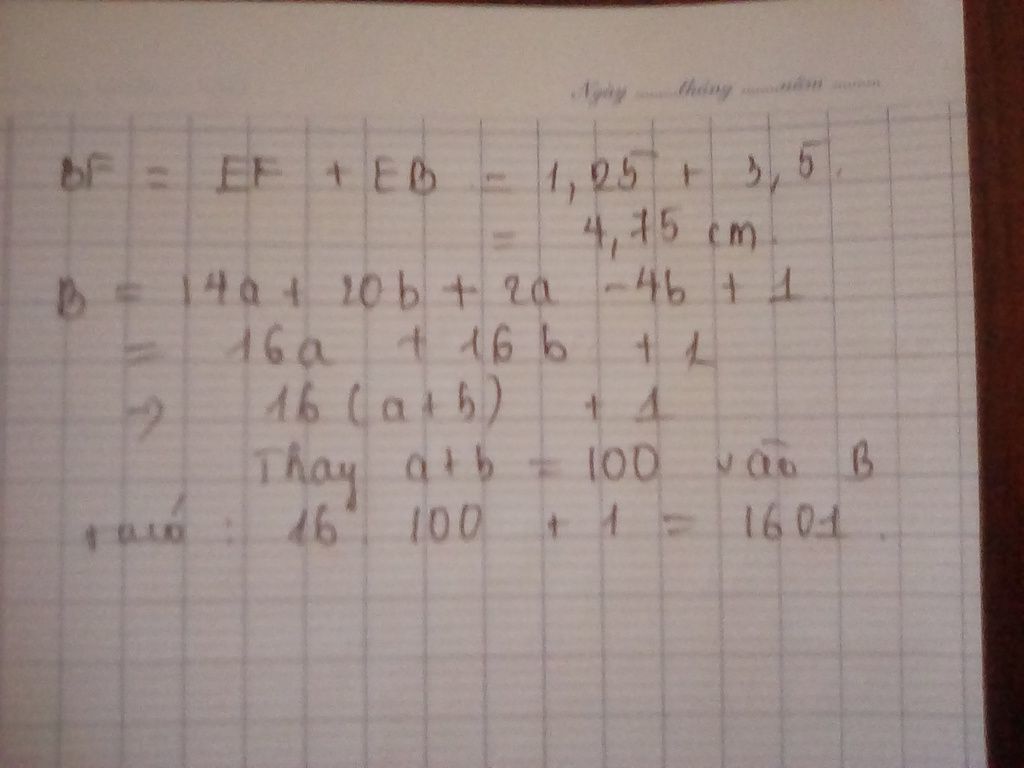 Ngày ........tháng .......năm ..........
BF = EF + EB = 1,25 + 3,5.
= 4,75 cm.
B = 14a + 20b + 2a - 4b + 1
= 16a + 16b + 1
→ 16 (a+b) + 1
Thay a+b = 100 vào B
ta có : 16 100 + 1 = 1601.